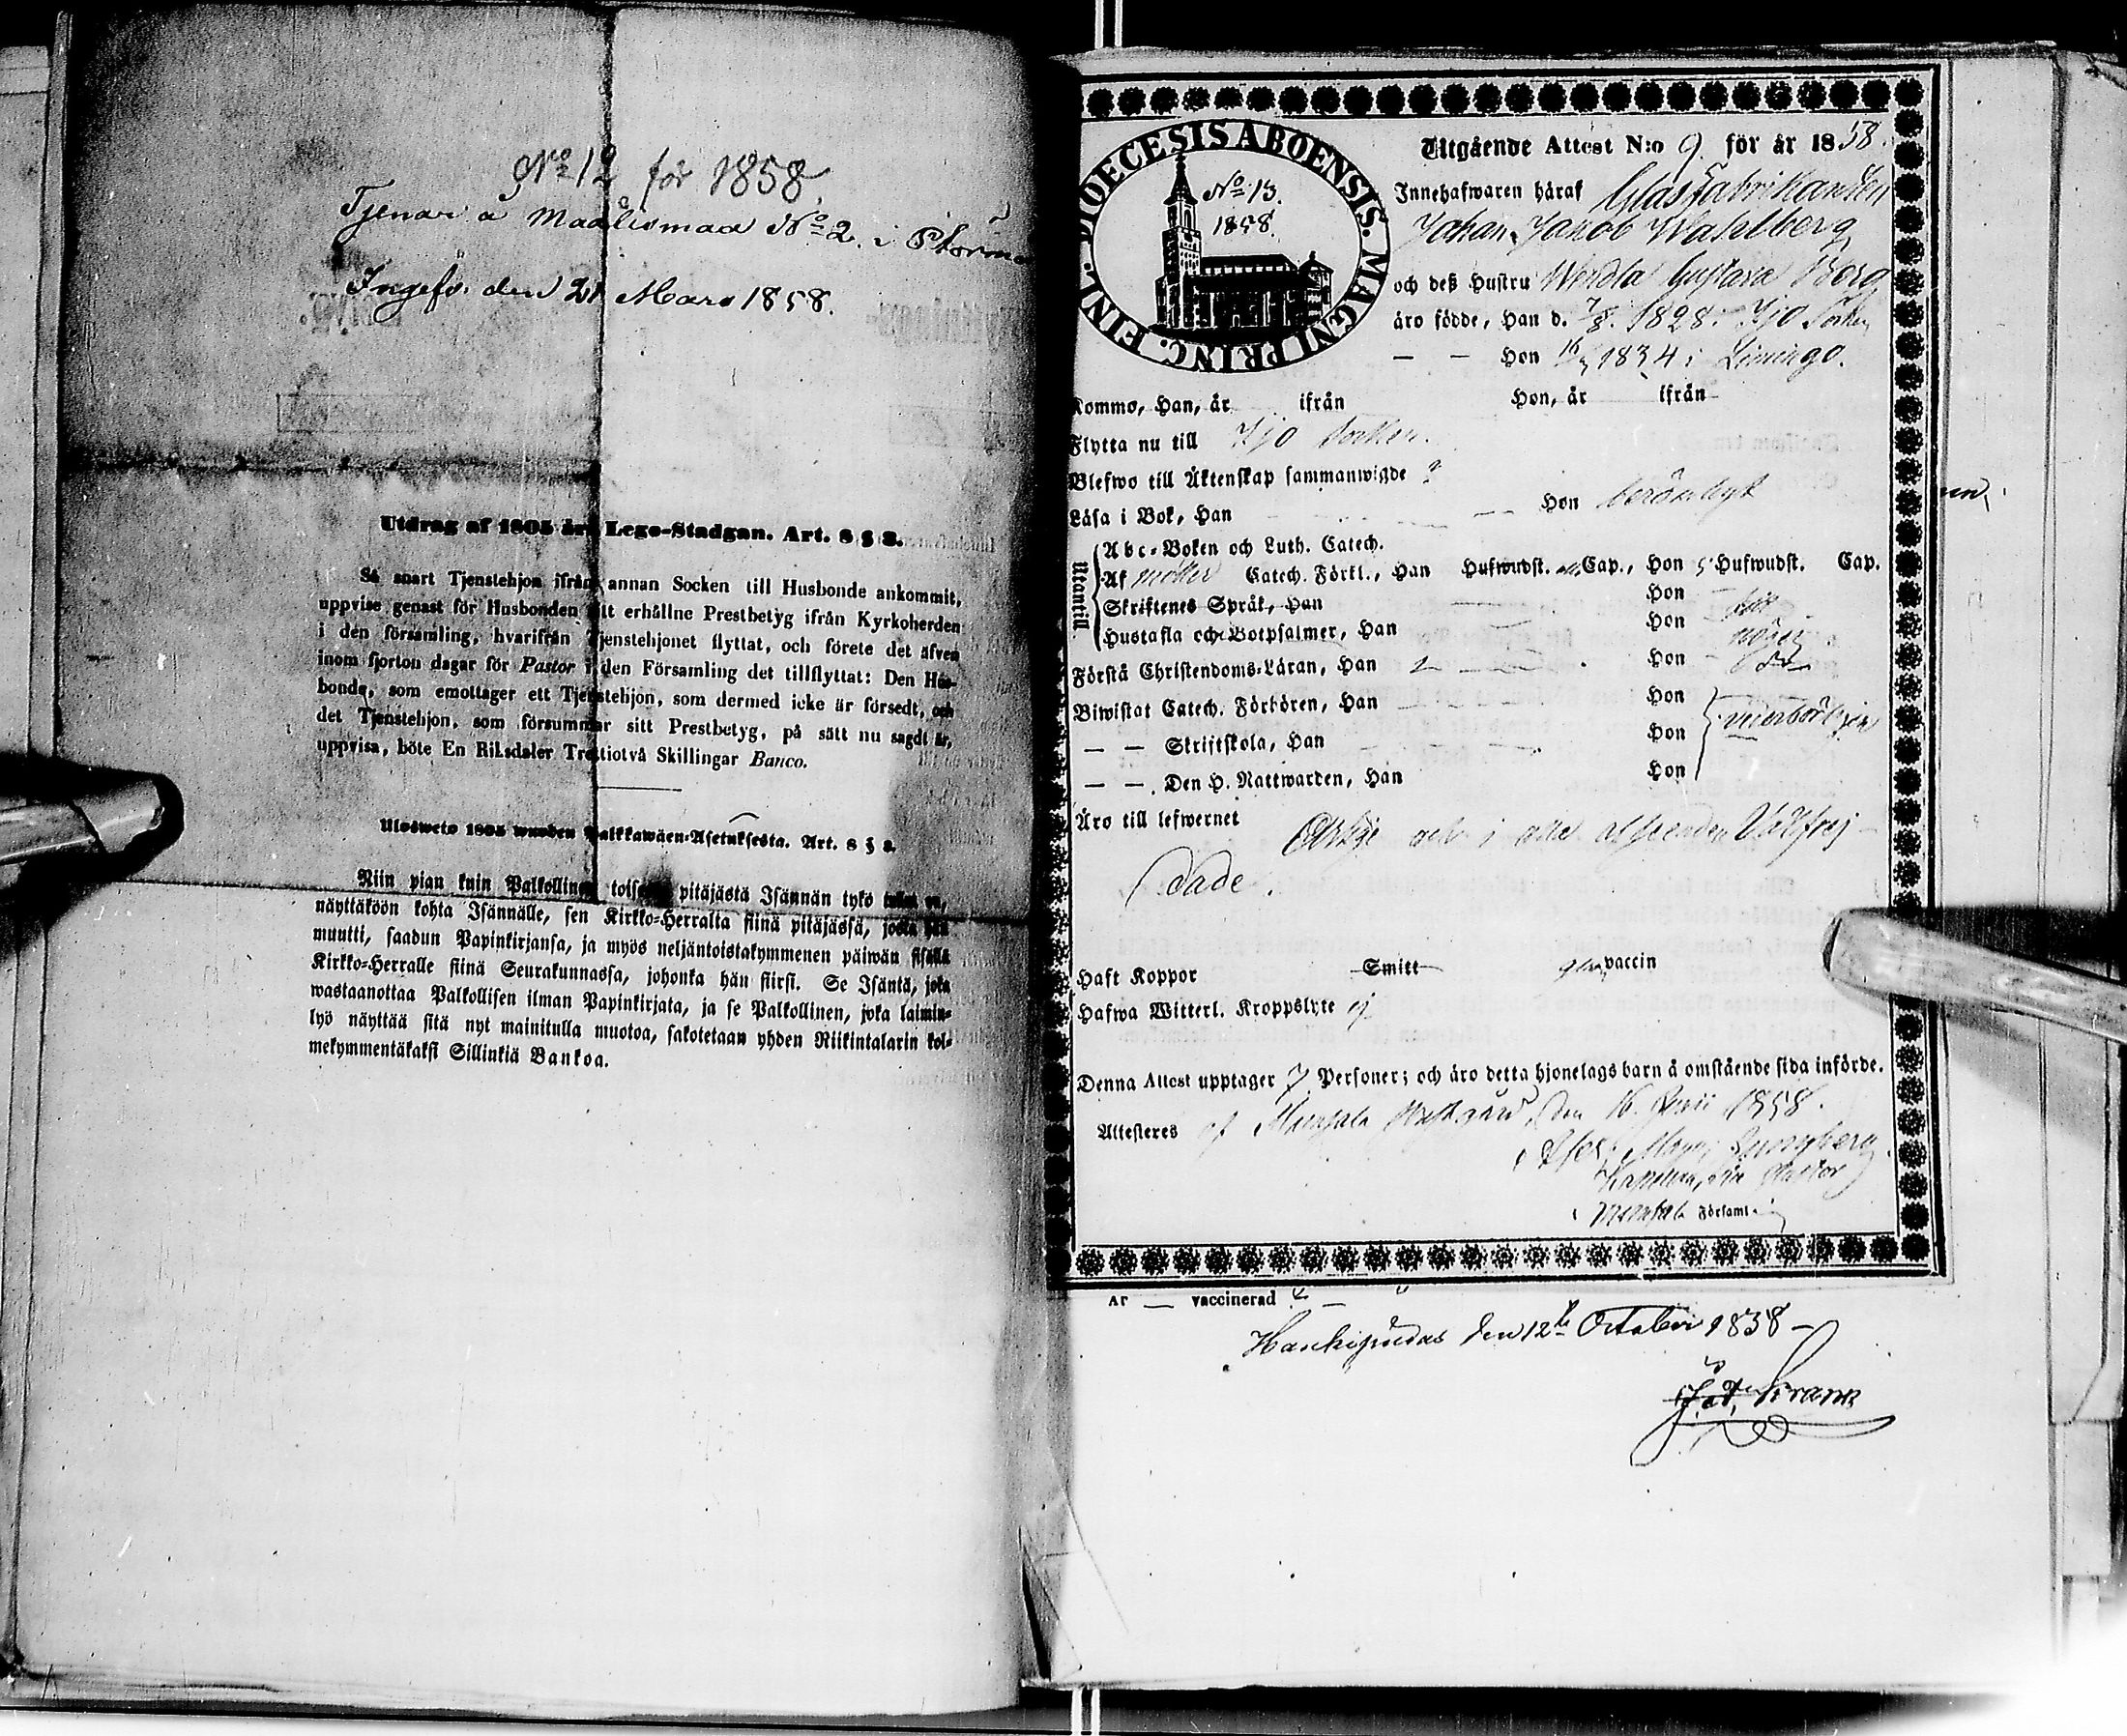 No 12 för 1858.
Tjenar å Maalismaa No 2. i
Ingefö. den 21 Mars 1858.
Utdrag af 1805 års Lego-Stadgan. Art. 8 § 8.
Så snart Tjenstehjon ifrån annan Socken till Husbonde ankommit,
uppvise genast för Husbonden sitt erhållne Prestbetyg ifrån Kyrkoherden
i den församling, hvarifrån Tjenstehjonet flyttat, och förete det äfven
inom fjorton dagar för Pastor i den Församling det tillflyttat: Den Hus-
bonde, som emottager ett Tjenstehjon, som dermed icke är försedt, och
det Tjenstehjon, som försummar sitt Prestbetyg, på sätt nu sagdt är,
uppvisa, böte En Riksdaler Trettiotvå Skillingar Banco.
Ulosweto 1805 wuoden Palkkawäen-Asetuksesta. Art. 8 § 8.
Niin pian kuin Palkollinen toisesta pitäjästä Isännän tykö tullut on,
näyttäköön kohta Isännälle, sen Kirkko-Herralta siinä pitäjässä, josta hän
muutti, saadun Papinkirjansa, ja myös neljäntoistakymmenen päiwän sisällä
Kirkko-Herralle siinä Seurakunnassa, johonka hän siirsi. Se Isäntä, joka
wastaanottaa Palkollisen ilman Papinkirjata, ja se Palkollinen, joka laimin-
lyö näyttää sitä nyt mainitulla muotoa, sakotetaan yhden Riikintalarin kol-
mekymmentäkaksi Sillinkiä Bankoa.
FINL. DIOECESIS ABOENSIS. MAGNI PRINC.
No 13.
1858.
Utgående Attest N:o 9 för år 1858.
Innehafwaren häraf Glasfabrikanten
Johan Jakob Wahlberg
och deß Hustru Wendla Gustava Berg
äro födde, Han d. 7/8. 1828. Ijo Socken
— — Hon 16/ 1834 i Limingo.
Kommo, Han, år ifrån Hon, år ifrån
Flytta nu till Ijo Socken.
Blefwo till Äktenskap sammanwigde
Läsa i Bok, Han — Hon berömligt
Utantill.
Abc-Boken och Luth. Catech.
Af Catech. Förkl., Han Hufwudst. Cap., Hon 5 Hufwudst. Cap.
Skriftenes Språk, Han — Hon —
Hustafla och Botpsalmer, Han — Hon
Förstå Christendoms-Läran, Han — Hon
Biwistat Catech. Förhören, Han — Hon
— — Skriftskola, Han — Hon
— — Den H. Nattwarden, Han Hon
Äro till lefwernet Ärlige och i alla afseenden Välfrej-
dade.
Haft Koppor Smitt vaccin
Hafwa Witterl. Kroppslyte ej
Denna Attest upptager 7 Personer; och äro detta hjonelags barn å omstående sida införde.
Attesteras af den 16. Juni 1858.
Församl
Ar — vaccinerad
Haukipudas den 12te October 1858 —